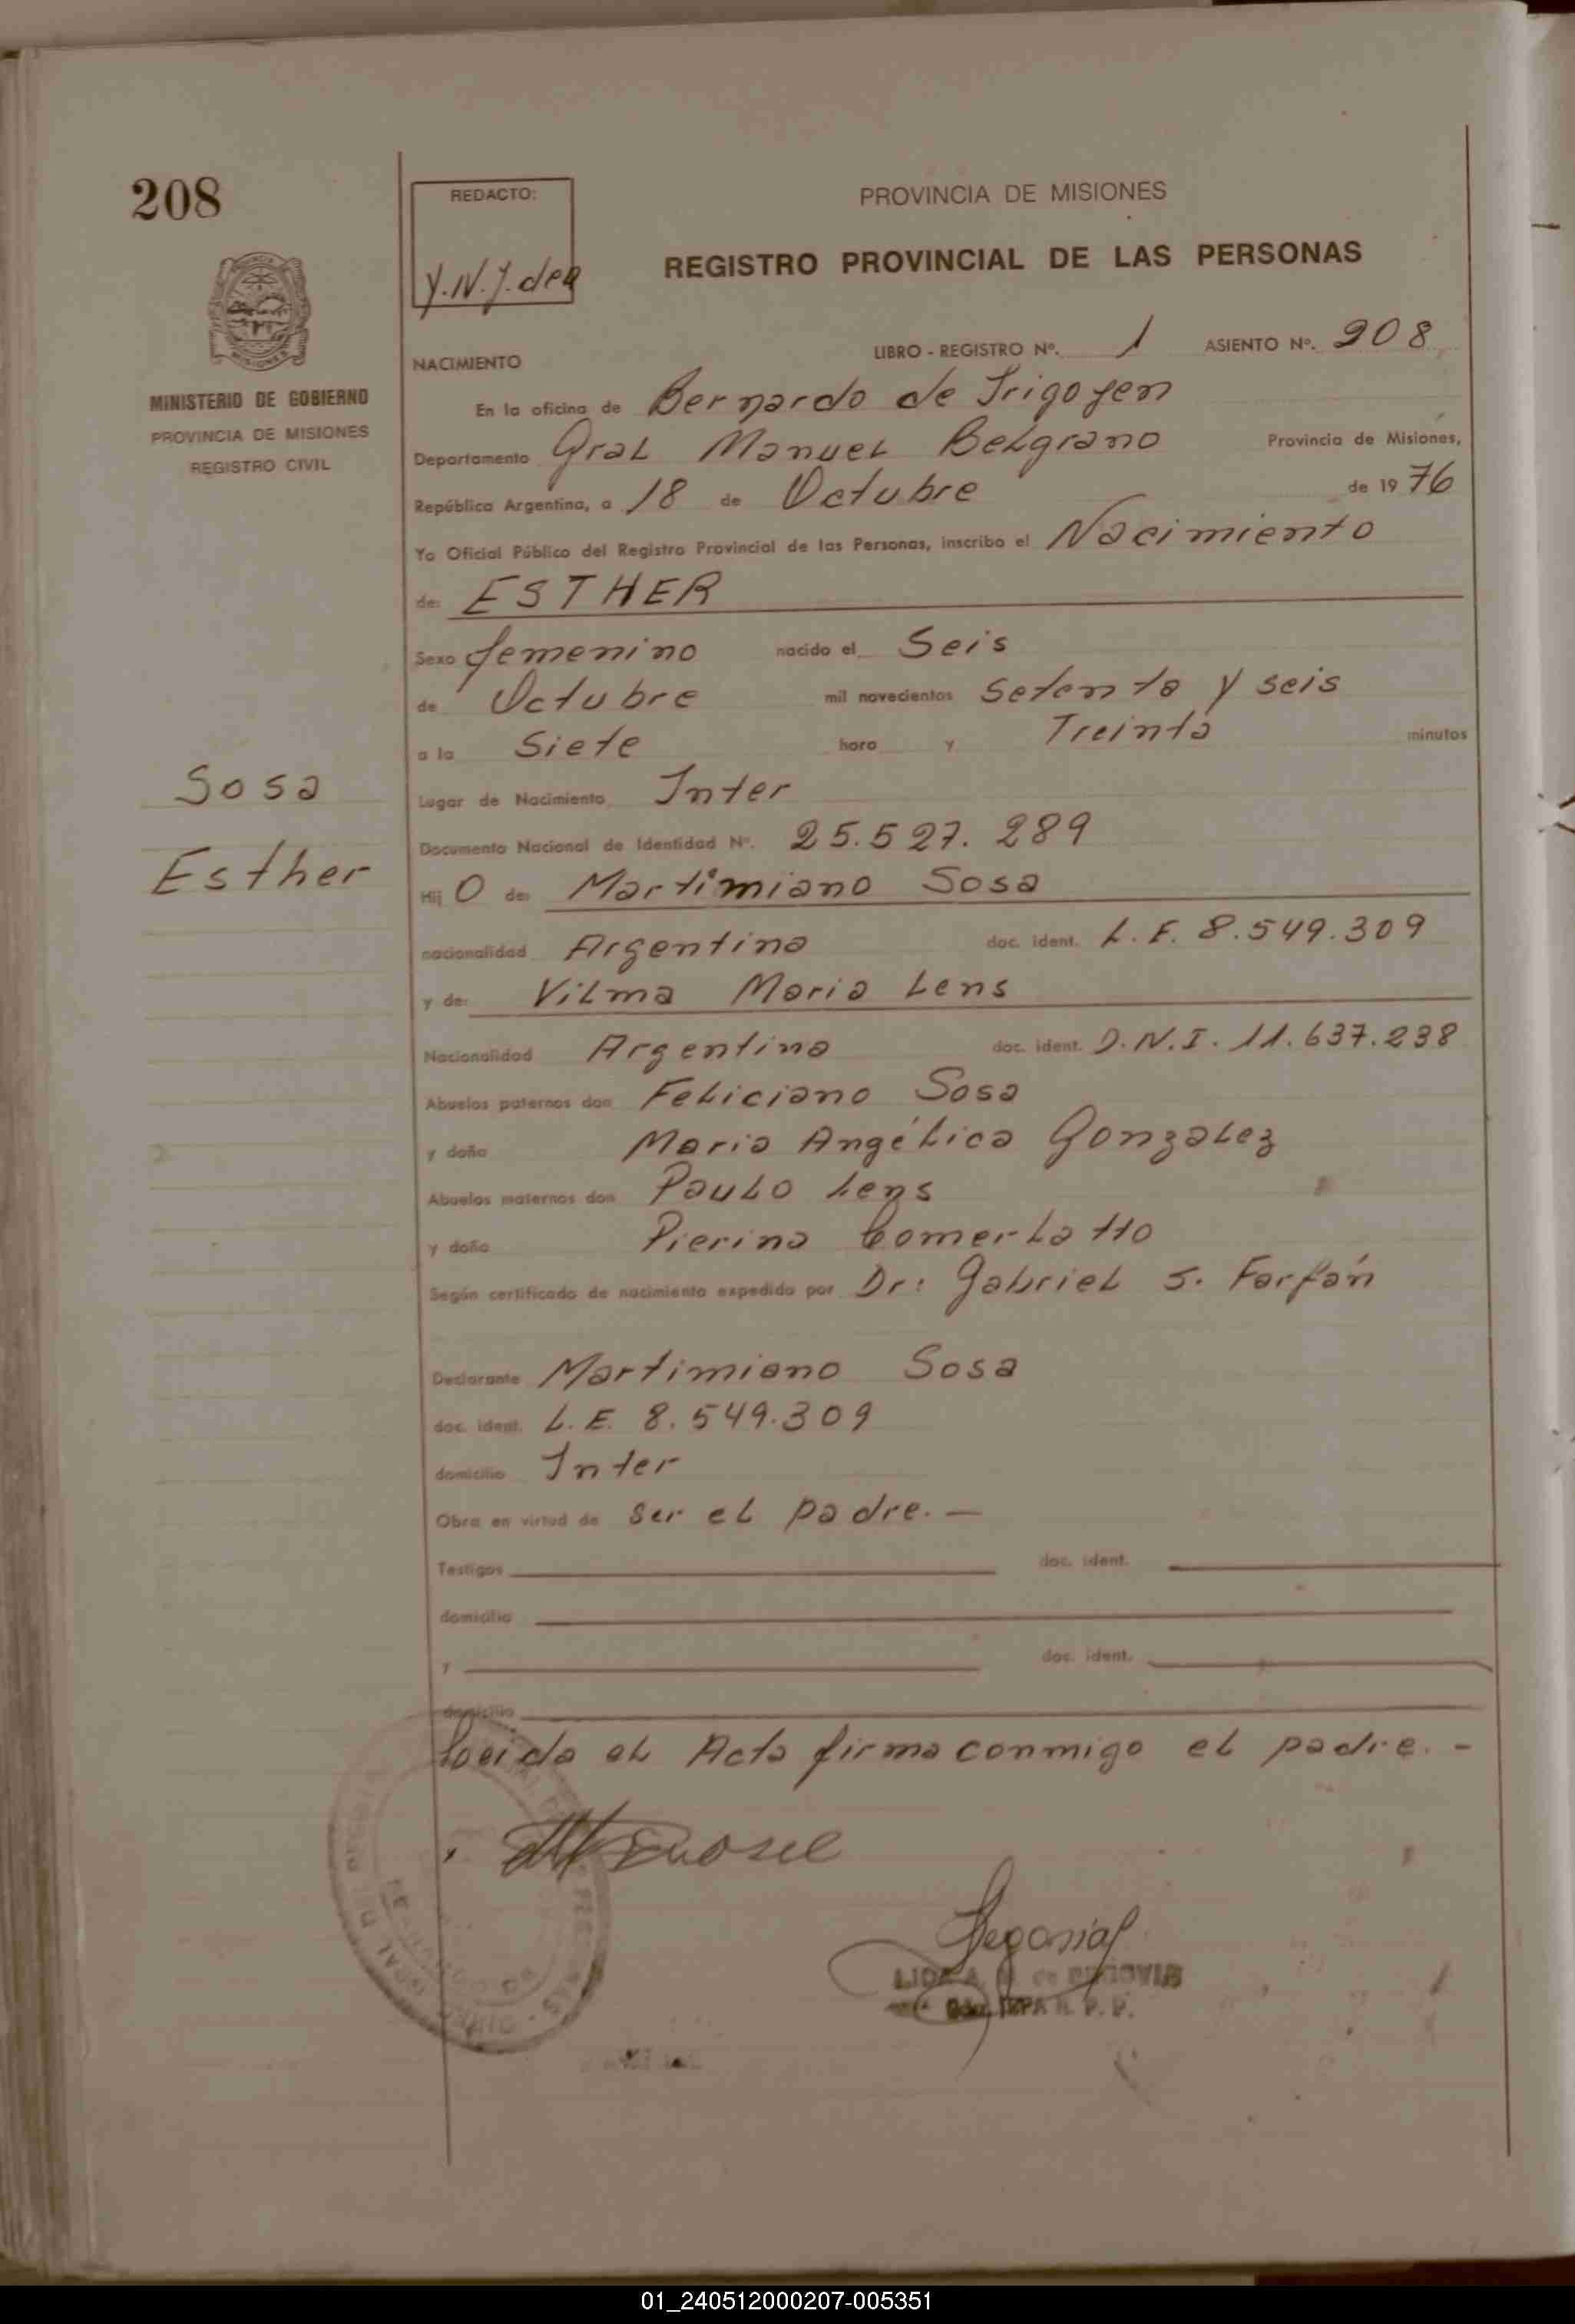 208
REDACTO:
Y.N.J. de A
PROVINCIA DE MISIONES
REGISTRO PROVINCIAL DE LAS PERSONAS
MINISTERIO DE GOBIERNO
PROVINCIA DE MISIONES
REGISTRO CIVIL
NACIMIENTO LIBRO - REGISTRO Nº. 1 ASIENTO Nº. 208
En la oficina de Bernardo de Irigoyen
Departamento Gral Manuel Belgrano Provincia de Misiones,
República Argentina, a 18 de Octubre de 1976
Yo Oficial Público del Registro Provincial de las Personas, inscribo el Nacimiento
de: ESTHER
Sexo femenino nacido el Seis
de Octubre mil novecientos Setenta y seis
a la Siete hora y Treinta minutos
Sosa
Esther
Lugar de Nacimiento Inter
Documento Nacional de Identidad Nº. 25.527.289
Hij O de: Martimiano Sosa
nacionalidad Argentina doc. ident. L.E. 8.549.309
y de: Vilma Maria Lens
Nacionalidad Argentina doc. ident. D.N.I. 11.637.238
Abuelos paternos don Feliciano Sosa
y doña Maria Angélica Gonzalez
Abuelos maternos don Paulo Lens
y doña Pierina Comerlatto
Según certificado de nacimiento expedido por Dr: Gabriel S. Farfán
Declarante Martimiano Sosa
doc. ident. L.E. 8.549.309
domicilio Inter
Obra en virtud de ser el padre. —
Testigos doc. ident.
domicilio
y doc. ident.
domicilio
Leida el Acta firma conmigo el padre. -
de SEGOVIA
R. P. P.
01_240512000207-005351